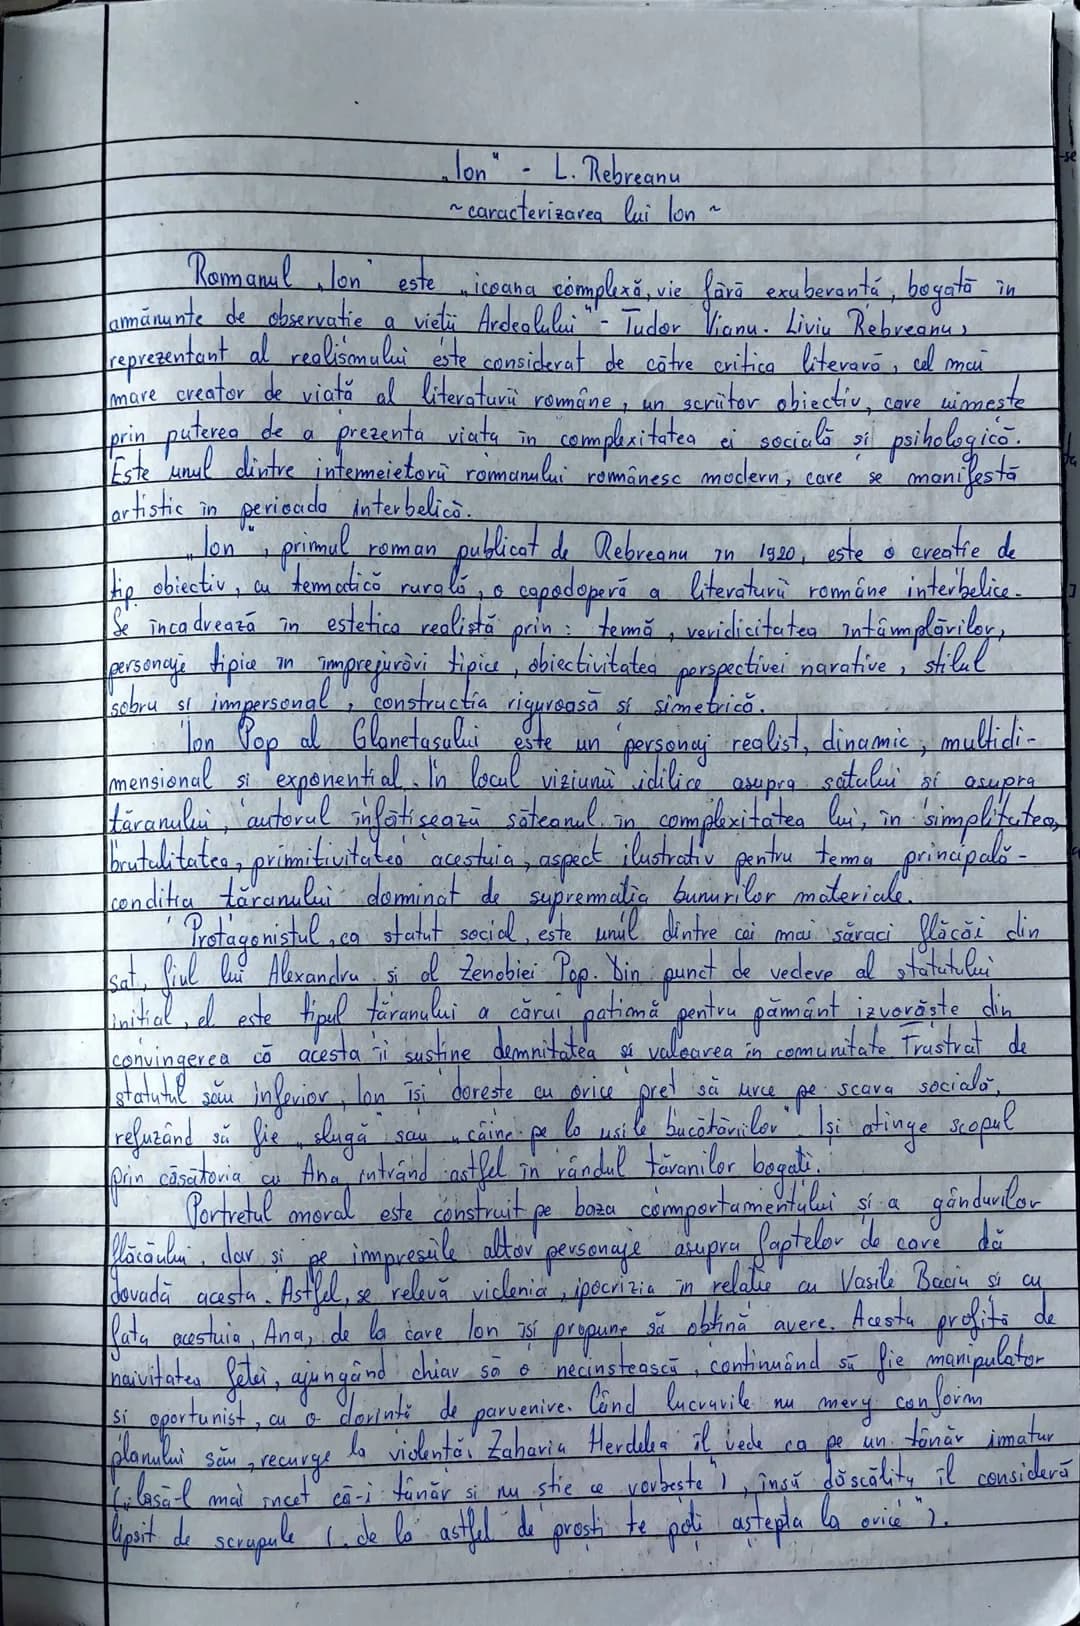 „Ion" - L. Rebreanu
~ caracterizarea lui Ion ~
Romanul „Ion" este „icoana complexă, vie fără exuberanță, bogată în
amănunte de observație a vieții Ardealului" - Tudor Vianu. Liviu Rebreanu,
reprezentant al realismului este considerat de către critica literară, cel mai
mare creator de viață al literaturii române, un scriitor obiectiv, care uimește
prin puterea de a prezenta viața în complexitatea ei socială și psihologică.
Este unul dintre întemeietorii romanului românesc modern, care se manifestă
artistic în perioada interbelică.
„Ion", primul roman publicat de Rebreanu în 1920, este o creație de
tip obiectiv, cu tematică rurală, o capodoperă a literaturii române interbelice.
Se încadrează în estetica realistă prin: temă, veridicitatea întâmplărilor,
personaje tipice în împrejurări tipice, obiectivitatea perspectivei narative, stilul
sobru și impersonal, construcția riguroasă și simetrică.
Ion Pop al Glanetașului este un personaj realist, dinamic, multidi-
mensional și exponențial. În locul viziunii idilice asupra satului și asupra
țăranului, autorul înfățisează săteanul în complexitatea lui, în simplitatea,
brutalitatea, primitivitatea acestuia, aspect ilustrativ pentru tema principală -
condiția țăranului dominat de supremația bunurilor materiale.
Protagonistul, ca statut social, este unul dintre cei mai săraci flăcăi din
sat, fiul lui Alexandru și al Zenobiei Pop. Din punct de vedere al statutului
inițial, el este tipul țăranului a cărui patimă pentru pământ izvorăște din
convingerea că acesta îi susține demnitatea și valoarea în comunitate Frustrat de
statutul său inferior, Ion își dorește cu orice preț să urce pe scara socială,
refuzând să fie „slugă" sau „câine pe la ușile bucătăriilor". Iși atinge scopul
prin căsătoria cu Ana, intrând astfel în rândul țăranilor bogați.
Portretul moral este construit pe baza comportamentului și a gândurilor
flăcăului, dar și pe impresiile altor personaje asupra faptelor de care dă
dovadă acesta. Astfel, se relevă viclenia, ipocrizia în relație cu Vasile Baciu și cu
fata acestuia, Ana, de la care Ion își propune să obțină avere. Acesta profită de
naivitatea fetei, ajungând chiar să o necinstească, continuând să fie manipulator
și oportunist, cu o dorință de parvenire. Când lucrurile nu merg conform
planului său, recurge la violență. Zaharia Herdelea îl vede ca pe un tânăr imatur
(„lasă-l mai încet că-i tânăr și nu știe ce vorbește"), însă dăscălița îl consideră
lipsit de scrupule („de la astfel de proști te poți aștepta la orice").